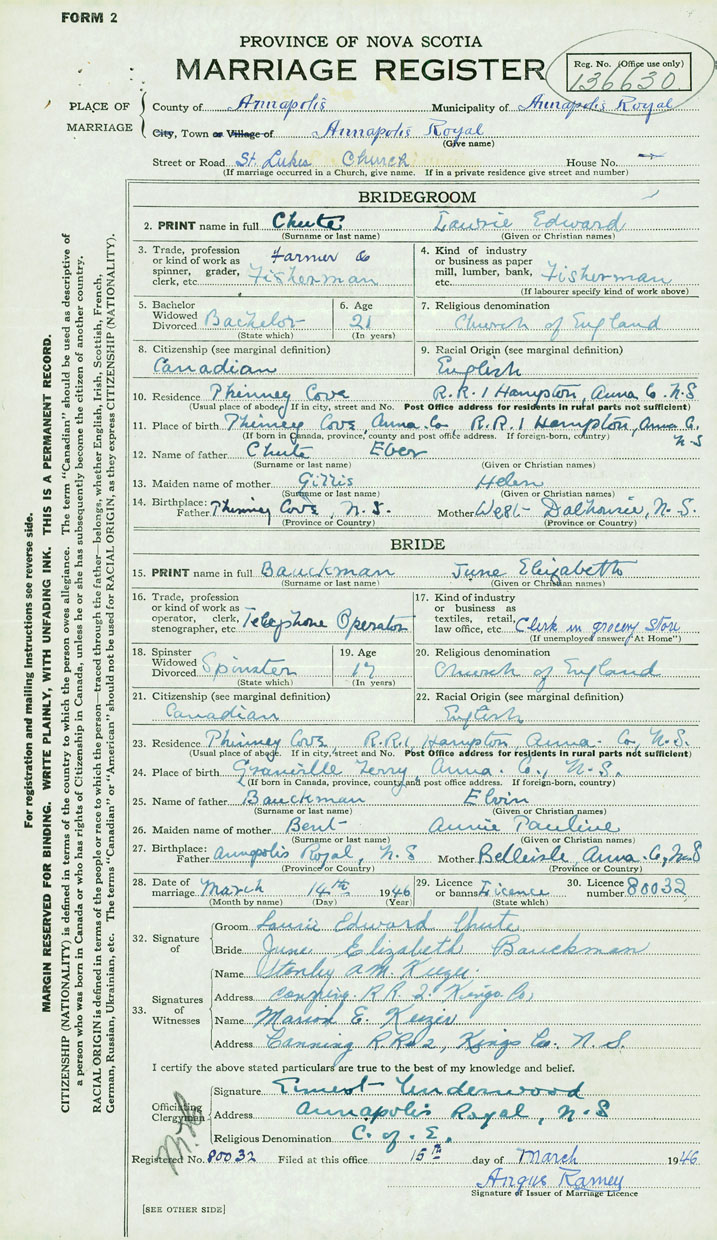 FORM 2
PROVINCE OF NOVA SCOTIA
MARRIAGE REGISTER
Reg. No. (Office use only)
136630
PLACE OF MARRIAGE
County of Annapolis Municipality of Annapolis Royal
City, Town or Village of Annapolis Royal
(Give name)
Street or Road St. Lukes Church House No. —
(If marriage occurred in a Church, give name. If in a private residence give street and number)
BRIDEGROOM
2. PRINT name in full Chute Laurie Edward
(Surname or last name) (Given or Christian names)
3. Trade, profession or kind of work as spinner, grader, clerk, etc. Farmer & Fisherman
4. Kind of industry or business as paper mill, lumber, bank, etc. Fisherman
(If labourer specify kind of work above)
5. Bachelor Widowed Divorced Bachelor
(State which)
6. Age 21
(In years)
7. Religious denomination
Church of England
8. Citizenship (see marginal definition)
Canadian
9. Racial Origin (see marginal definition)
English
10. Residence Phinney Cove R.R.1 Hampton, Anna Co. N.S
(Usual place of abode. If in city, street and No. Post Office address for residents in rural parts not sufficient)
11. Place of birth Phinney Cove, Anna. Co., R.R.1 Hampton, Anna Co. N S
(If born in Canada, province, county and post office address. If foreign-born, country)
12. Name of father Chute Eber
(Surname or last name) (Given or Christian names)
13. Maiden name of mother Gillis Helen
(Surname or last name) (Given or Christian names)
14. Birthplace: Father Phinney Cove, N.S. Mother West Dalhousie, N.S.
(Province or Country) (Province or Country)
BRIDE
15. PRINT name in full Bauckman June Elizabeth
(Surname or last name) (Given or Christian names)
16. Trade, profession or kind of work as operator, clerk, stenographer, etc. Telephone Operator
17. Kind of industry or business as textiles, retail, law office, etc. Clerk in grocery store
(If unemployed answer "At Home")
18. Spinster Widowed Divorced Spinster
(State which)
19. Age 17
(In years)
20. Religious denomination
Church of England
21. Citizenship (see marginal definition)
Canadian
22. Racial Origin (see marginal definition)
English
23. Residence Phinney Cove, R.R.1 Hampton Anna. Co, N.S.
(Usual place of abode. If in city, street and No. Post Office address for residents in rural parts not sufficient)
24. Place of birth Granville Ferry, Anna. Co., N.S.
(If born in Canada, province, county and post office address. If foreign-born, country)
25. Name of father Bauckman Elvin
(Surname or last name) (Given or Christian names)
26. Maiden name of mother Bent Annie Pauline
(Surname or last name) (Given or Christian names)
27. Birthplace: Father Annapolis Royal, N.S Mother Belleisle, Anna. Co, N.S
(Province or Country) (Province or Country)
28. Date of marriage March 14th 1946
(Month by name) (Day) (Year)
29. Licence or banns Licence
(State which)
30. Licence number 80032
32. Signature of
Groom Laurie Edward Chute
Bride June Elizabeth Bauckman
33. Signatures of Witnesses
Name Stanley A.M.
Address R.R. 2. Kings Co,
Name Marion E. Keezer
Address Canning R.R. 2, Kings Co. N.S.
I certify the above stated particulars are true to the best of my knowledge and belief.
Officiating Clergyman
Signature Ernest Underwood
Address Annapolis Royal, N.S
Religious Denomination C. of E.
Registered No. 80032 Filed at this office 15th day of March 1946
Angus Ramey
Signature of Issuer of Marriage Licence
[SEE OTHER SIDE]
For registration and mailing instructions see reverse side.
MARGIN RESERVED FOR BINDING. WRITE PLAINLY, WITH UNFADING INK. THIS IS A PERMANENT RECORD.
CITIZENSHIP (NATIONALITY) is defined in terms of the country to which the person owes allegiance. The term "Canadian" should be used as descriptive of
a person who was born in Canada or who has rights of Citizenship in Canada, unless he or she has subsequently become the citizen of another country.
RACIAL ORIGIN is defined in terms of the people or race to which the person—traced through the father—belongs, whether English, Irish, Scottish, French,
German, Russian, Ukrainian, etc. The terms "Canadian" or "American" should not be used for RACIAL ORIGIN, as they express CITIZENSHIP (NATIONALITY).